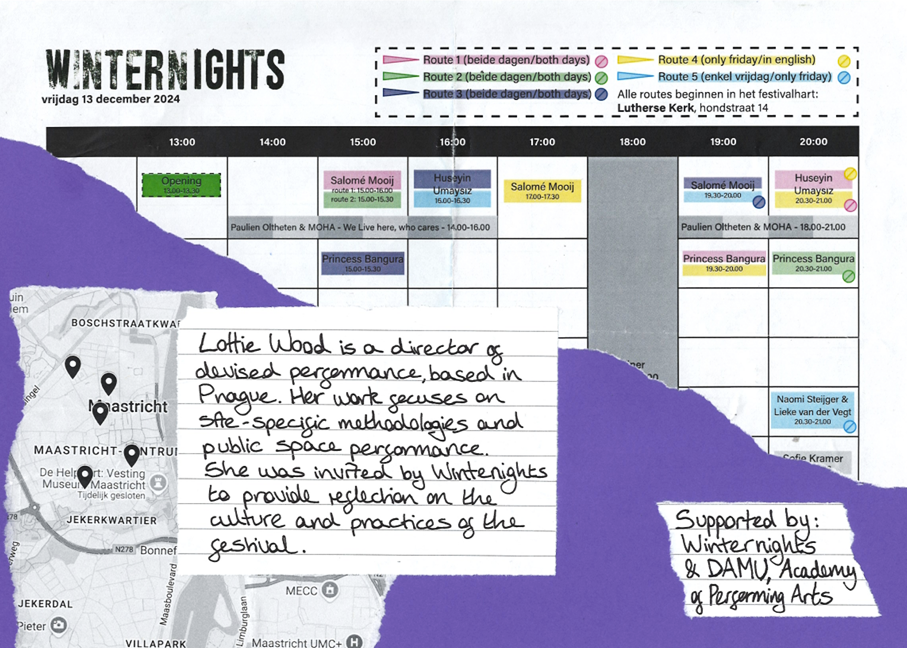 WINTERNIGHTS
vrijdag 13 december 2024
Route 1 (beide dagen/both days)
Route 2 (beide dagen/both days)
Route 3 (beide dagen/both days)
Route 4 (only friday/in english)
Route 5 (enkel vrijdag/only friday)
Alle routes beginnen in het festivalhart:
Lutherse Kerk, hondstraat 14
13:00 14:00 15:00 16:00 17:00 18:00 19:00 20:00
Opening
13.00-13.30
Salomé Mooij
route 1: 15.00-16.00
route 2: 15.00-15.30
Huseyin
Umaysiz
16.00-16.30
Salomé Mooij
17.00-17.30
Salomé Mooij
19.30-20.00
Huseyin
Umaysiz
20.30-21.00
Paulien Oltheten & MOHA - We Live here, who cares - 14.00-16.00
Paulien Oltheten & MOHA - 18.00-21.00
Princess Bangura
15.00-15.30
Princess Bangura
19.30-20.00
Princess Bangura
20.30-21.00
Naomi Steijger &
Lieke van der Vegt
20.30-21.00
Sofie Kramer
BOSCHSTRAATKWA
Maastricht
MAASTRICHT-CENTRUM
De Helpoort: Vesting
Museum Maastricht
Tijdelijk gesloten
JEKERKWARTIER
N278 Bonnef
MECC
JEKERDAL
Pieter
Maasboulevard
Limburglaan
VILLAPARK
Maastricht UMC+
Lottie Wood is a director of
devised performance, based in
Prague. Her work focuses on
site-specific methodologies and
public space performance.
She was invited by Winternights
to provide reflection on the
culture and practices of the
festival.
Supported by:
Winternights
& DAMU, Academy
of Performing Arts